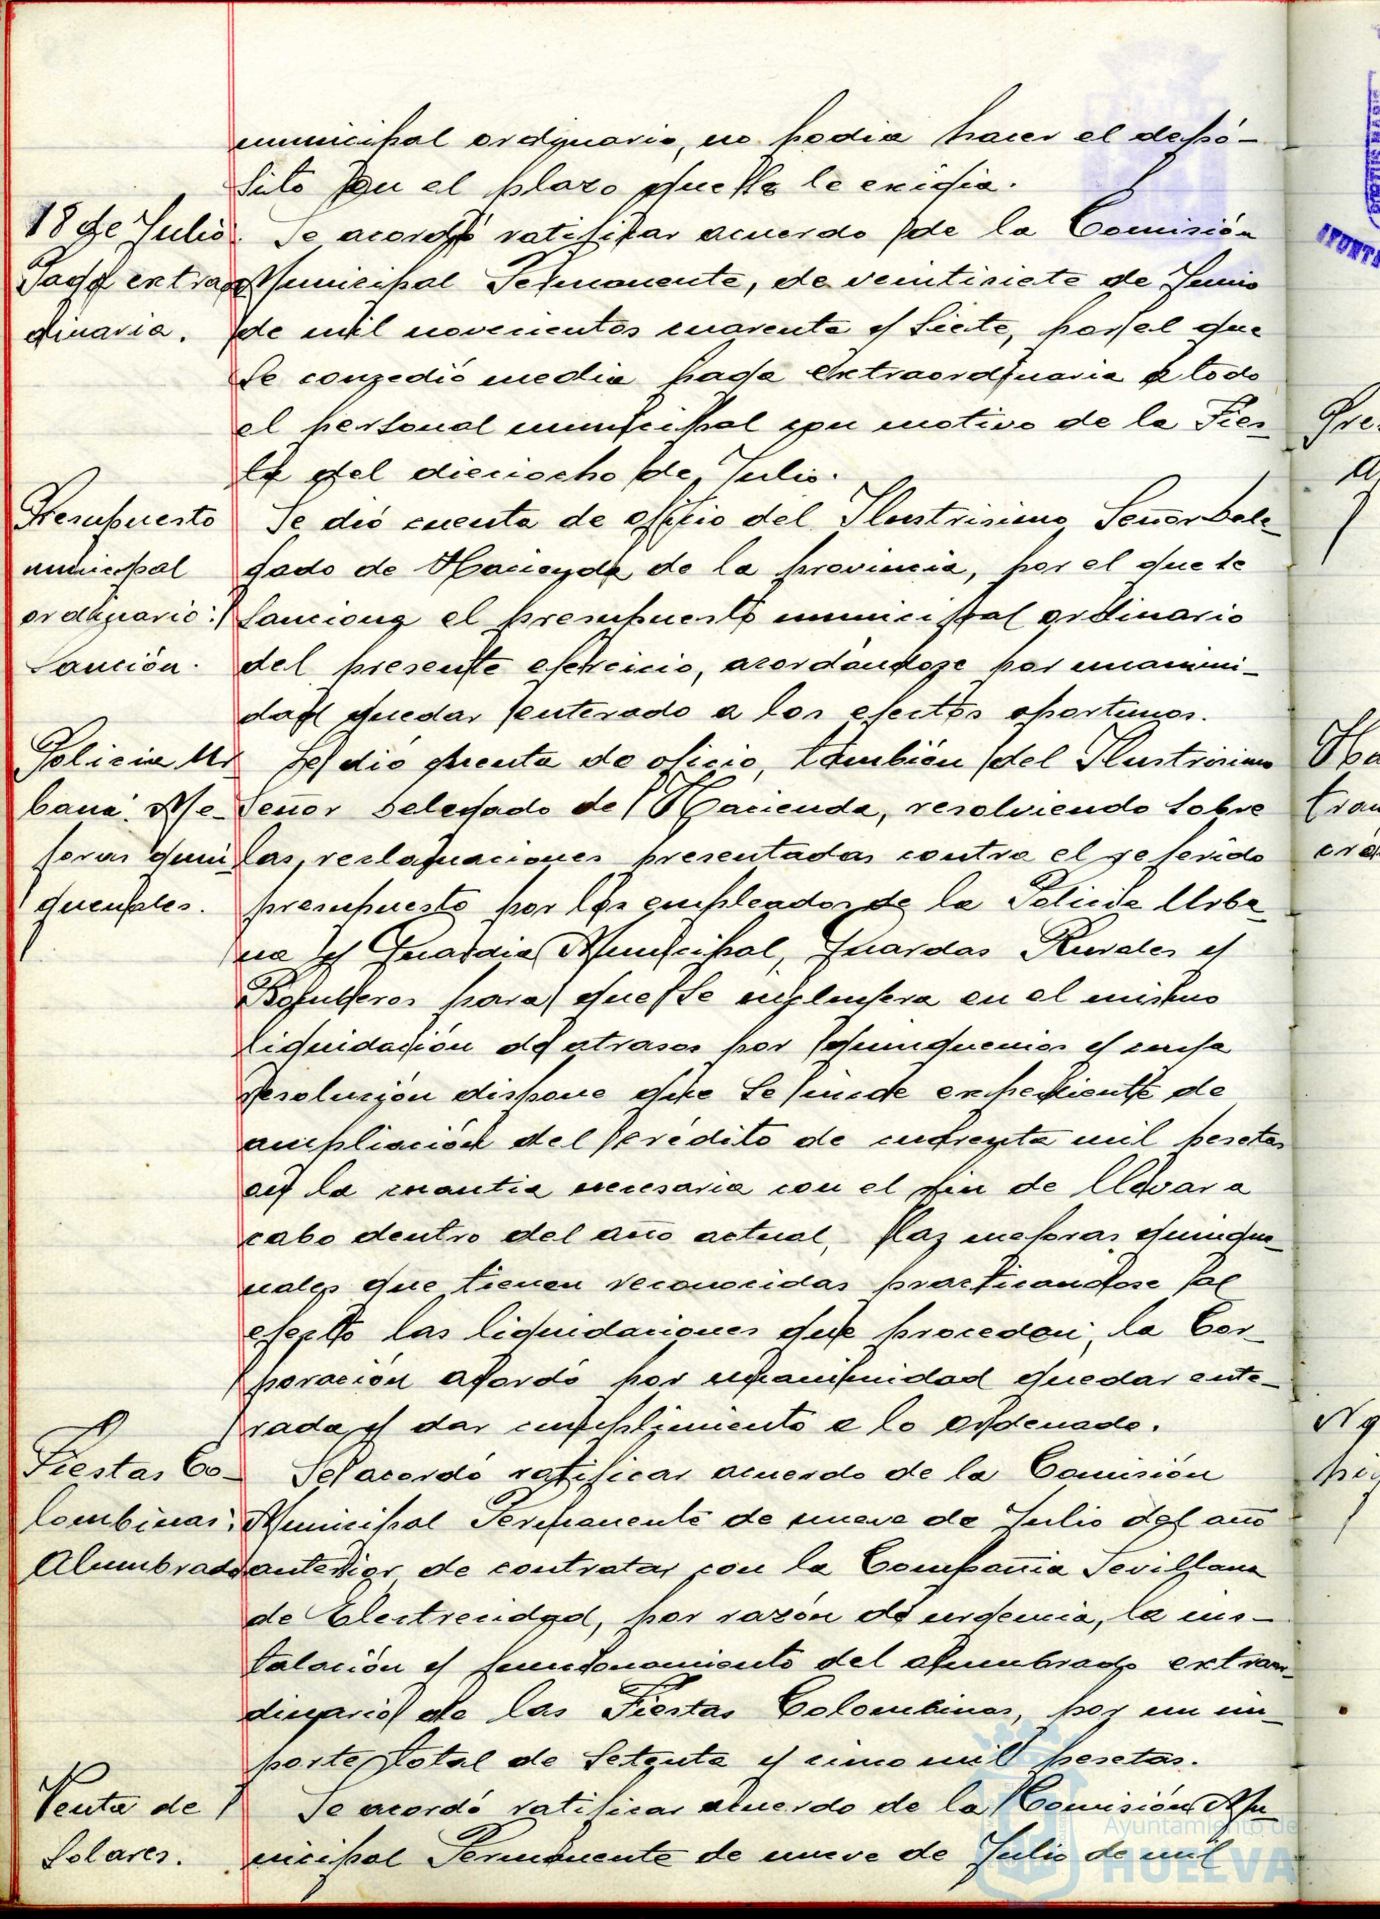 municipal ordinario, no podia hacer el depó-
sito en el plazo que se le exigia.
18 de Julio.
Paga extraor
dinaria.
Se acordó ratificar acuerdo de la Comisión
Municipal Permanente, de veintisiete de Junio
de mil novecientos cuarenta y siete, por el que
se concedió media paga extraordinaria a todo
el personal municipal con motivo de la Fies-
ta del dieciocho de Julio.
Presupuesto
municipal
ordinario:
Sanción.
Se dió cuenta de oficio del Ilustrisimo Señor Dele-
gado de Hacienda de la provincia, por el que se
sanciona el presupuesto municipal ordinario
del presente ejercicio, acordándose por unanimi-
dad quedar enterado a los efectos oportunos.
Policia Ur
bana: Me-
joras quin
quenales.
Se dió cuenta de oficio, también del Ilustrisimo
Señor Delegado de Hacienda, resolviendo sobre
las reclamaciones presentadas contra el referido
presupuesto por los empleados de la Policia Urba-
na y Guardia Municipal, Guardas Rurales y
Bomberos para que se incluyera en el mismo
liquidación de atrasos por quinquenios y cuya
resolución dispone que se inicie expediente de
ampliación del crédito de cuarenta mil pesetas
en la cuantia necesaria con el fin de llevar a
cabo dentro del año actual, las mejoras quinque-
nales que tienen reconocidas practicandose al
efecto las liquidaciones que procedan; la Cor-
poración acordó por unanimidad quedar ente-
rada y dar cumplimiento a lo ordenado.
Fiestas Co-
lombinas:
Alumbrado
Se acordó ratificar acuerdo de la Comisión
Municipal Permanente de nueve de Julio del año
anterior de contratar con la Compañia Sevillana
de Electricidad, por razón de urgencia, la ins-
talación y funcionamiento del alumbrado extraor-
dinario de las Fiestas Colombinas, por un im-
porte total de setenta y cinco mil pesetas.
Venta de
Solares.
Se acordó ratificar acuerdo de la Comisión Mu-
nicipal Permanente de nueve de Julio de mil
Ayuntamiento de
HUELVA